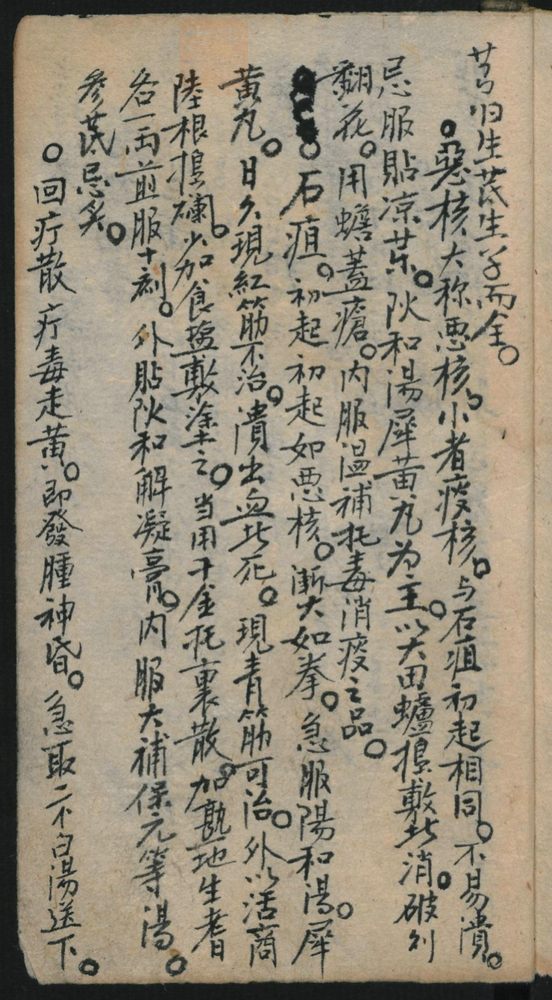 芎歸生芪生草而全。
。惡核大称悪核。小者痰核。与石疽初起相同。不易潰。
忌服貼凉藥。阦和湯犀黄丸为主。以大田蠦搗敷此消。破則
翻花。用蟾蓋瘡。内服温補托毒消痰之品。
。石疽。初起初起如悪核。漸大如拳。急服陽和湯。犀
黄丸。日久現紅筋不治。潰出血此死。現青筋可治。外以活商
陸根搗爛。少加食塩敷塗之。当用千金托裏散。加熟地生耆
各一両煎服十剤。外貼阦和解凝膏。内服大補保元等湯。
参芪忌炙。
。回疔散 疔毒走黄。即發腫神昏。急取二个白湯送下。